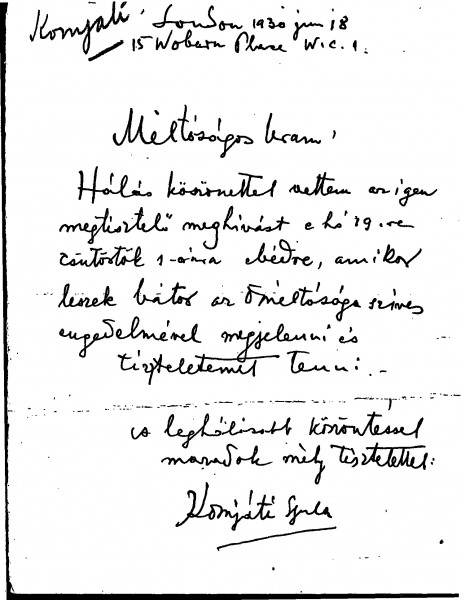 Komjáti. London 1930 jun 18
15 Woburn Place W.C.1.
Méltóságos Uram!
Hálás köszönettel vettem az igen
megtisztelő meghivást e hó 19.-re
csütörtök 1-órára ebédre, amikor
leszek bátor az Őméltósága szives
engedelmével megjelenni és
tiszteletemet tenni.-
a leghálásabb köszöntéssel
maradok mély tisztelettel:
Komjáti Gyula